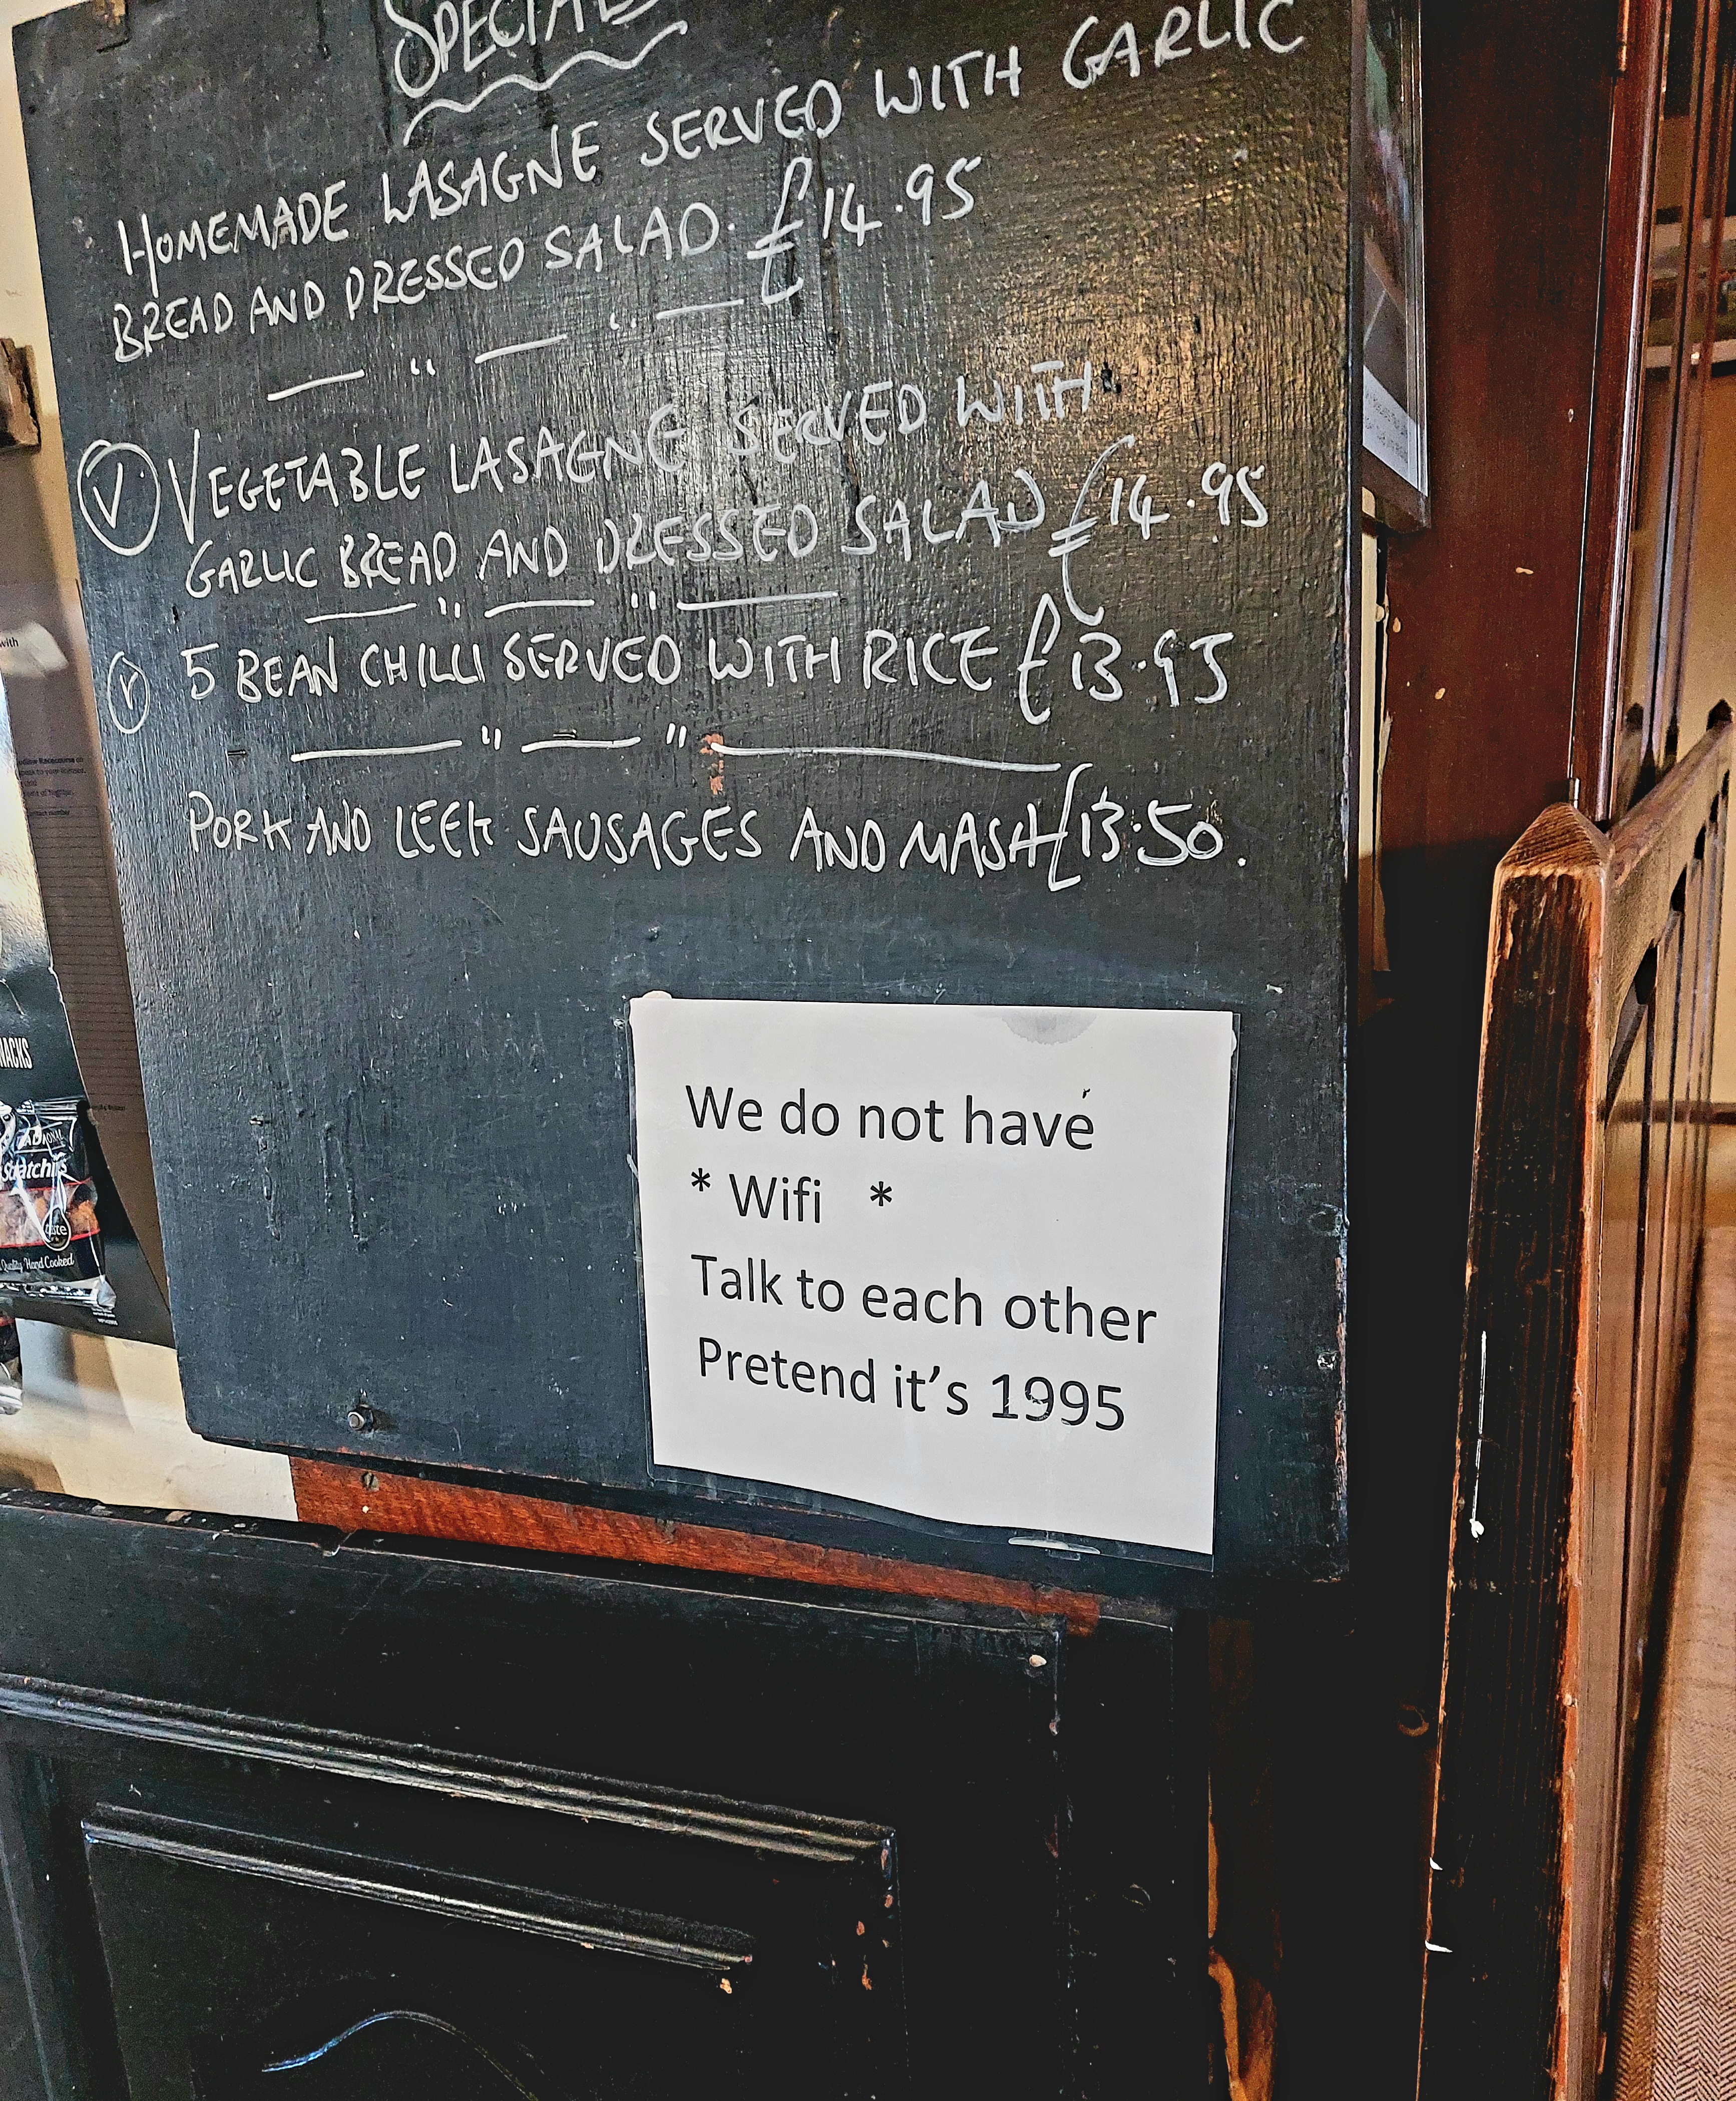 SPECIALS
HOMEMADE LASAGNE SERVED WITH GARLIC
BREAD AND DRESSED SALAD. £14.95
V VEGETABLE LASAGNE SERVED WITH
GARLIC BREAD AND DRESSED SALAD £14.95
V 5 BEAN CHILLI SERVED WITH RICE £13.95
PORK AND LEEK SAUSAGES AND MASH £13.50.
We do not have
* Wifi *
Talk to each other
Pretend it's 1995
with
Quality Hand Cooked